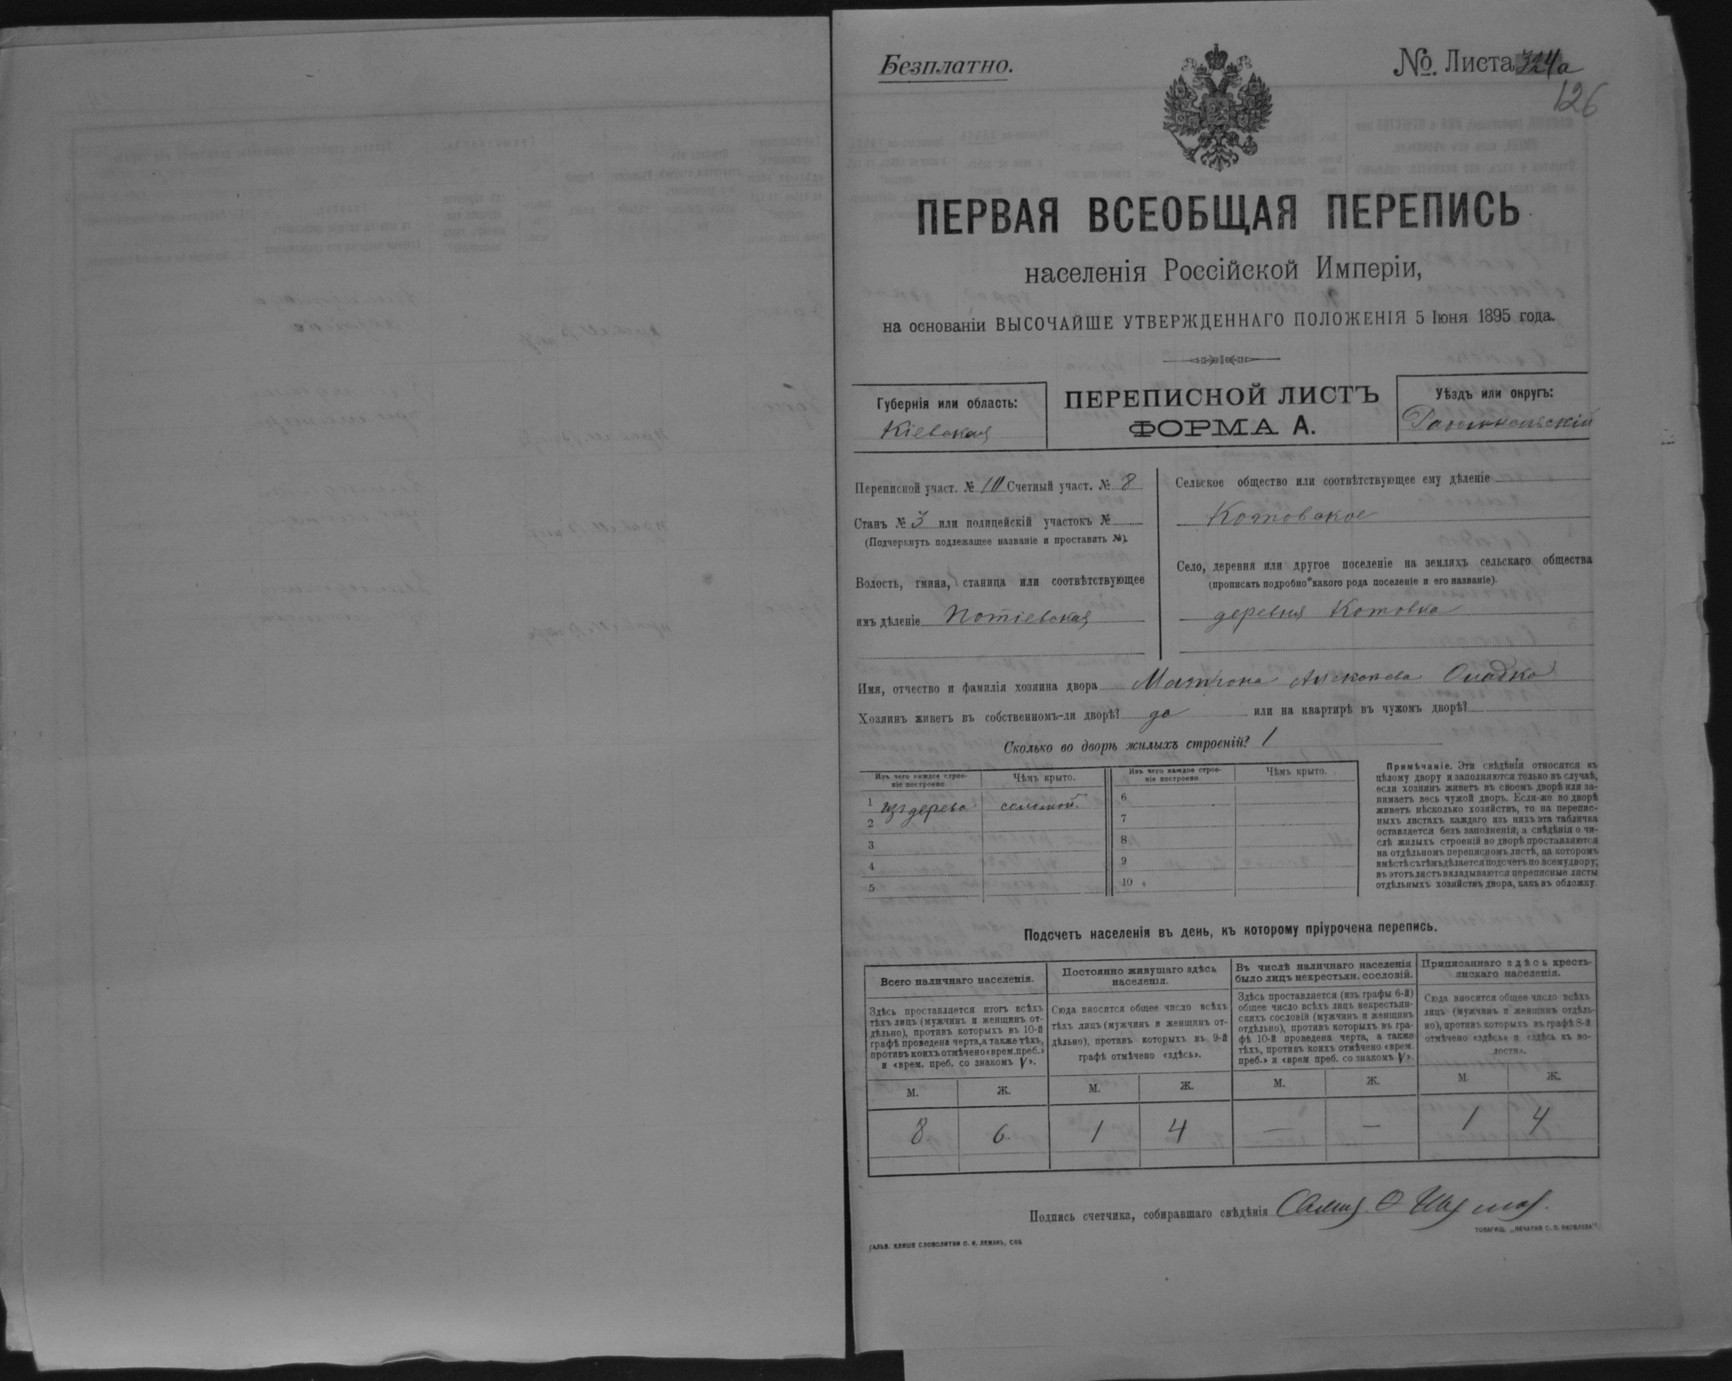 Безплатно.
№. Листа 324а
126
ПЕРВАЯ ВСЕОБЩАЯ ПЕРЕПИСЬ
населенія Россійской Имперіи,
на основаніи ВЫСОЧАЙШЕ УТВЕРЖДЕННАГО ПОЛОЖЕНІЯ 5 Іюня 1895 года.
Губернія или область:
Кіевская
ПЕРЕПИСНОЙ ЛИСТЪ
ФОРМА А.
Уѣздъ или округъ:
Переписной участ. № 10 Счетный участ. № 8
Станъ № 3 или полицейскій участокъ №
(Подчеркнуть подлежащее названіе и проставить №).
Волость, гмина, станица или соотвѣтствующее
имъ дѣленіе Потіевская
Сельское общество или соотвѣтствующее ему дѣленіе
Котовское
Село, деревня или другое поселеніе на земляхъ сельскаго общества
(прописать подробно какого рода поселеніе и его названіе).
деревня Котовка
Имя, отчество и фамилія хозяина двора Матрона
Хозяинъ живетъ въ собственномъ-ли дворѣ? да или на квартирѣ въ чужомъ дворѣ?
Сколько во дворѣ жилыхъ строеній? 1
Изъ чего каждое строе-
ніе построено
Чѣмъ крыто.
Изъ чего каждое строе-
ніе построено
Чѣмъ крыто.
1 изъ дерева соломой
2
3
4
5
6
7
8
9
10
Примѣчаніе. Эти свѣдѣнія относятся къ
цѣлому двору и заполняются только въ случаѣ,
если хозяинъ живетъ въ своемъ дворѣ или за-
нимаетъ весь чужой дворъ. Если-же во дворѣ
живетъ нѣсколько хозяйствъ, то на перепис-
ныхъ листахъ каждаго изъ нихъ эта табличка
оставляется безъ заполненій, а свѣдѣнія о чи-
слѣ жилыхъ строеній во дворѣ проставляются
на отдѣльномъ переписномъ листѣ, на которомъ
вмѣстѣ съ тѣмъ дѣлается подсчетъ по всему двору;
въ этотъ листъ вкладываются переписные листы
отдѣльныхъ хозяйствъ двора, какъ въ обложку.
Подсчетъ населенія въ день, къ которому пріурочена перепись.
Всего наличнаго населенія.
Здѣсь проставляется итогъ всѣхъ
тѣхъ лицъ (мужчинъ и женщинъ от-
дѣльно), противъ которыхъ въ 10-й
графѣ проведена черта, а также тѣхъ,
противъ коихъ отмѣчено «врем. преб.»
и «врем. преб. со знакомъ V».
Постоянно живущаго здѣсь
населенія.
Сюда вносится общее число всѣхъ
тѣхъ лицъ (мужчинъ и женщинъ от-
дѣльно), противъ которыхъ въ 9-й
графѣ отмѣчено «здѣсь».
Въ числѣ наличнаго населенія
было лицъ некрестьян. сословій.
Здѣсь проставляется (изъ графы 6-й)
общее число всѣхъ лицъ некрестьян-
скихъ сословій (мужчинъ и женщинъ
отдѣльно), противъ которыхъ въ гра-
фѣ 10-й проведена черта, а также
тѣхъ, противъ коихъ отмѣчено «врем.
преб.» и «врем преб. со знакомъ V».
Приписаннаго здѣсь кресть-
янскаго населенія.
Сюда вносится общее число всѣхъ
лицъ (мужчинъ и женщинъ отдѣль-
но), противъ которыхъ въ графѣ 8-й
отмѣчено «здѣсь» и «здѣсь въ во-
лости».
М. Ж. М. Ж. М. Ж. М. Ж.
8 6 1 4 — — 1 4
Подпись счетчика, собиравшаго свѣдѣнія
ГАЛЬВ. КЛИШЕ СЛОВОЛИТНИ О. И. ЛЕМАНЪ, СПБ
ТОВАРИЩ. „ПЕЧАТНЯ С. П. ЯКОВЛЕВА“.